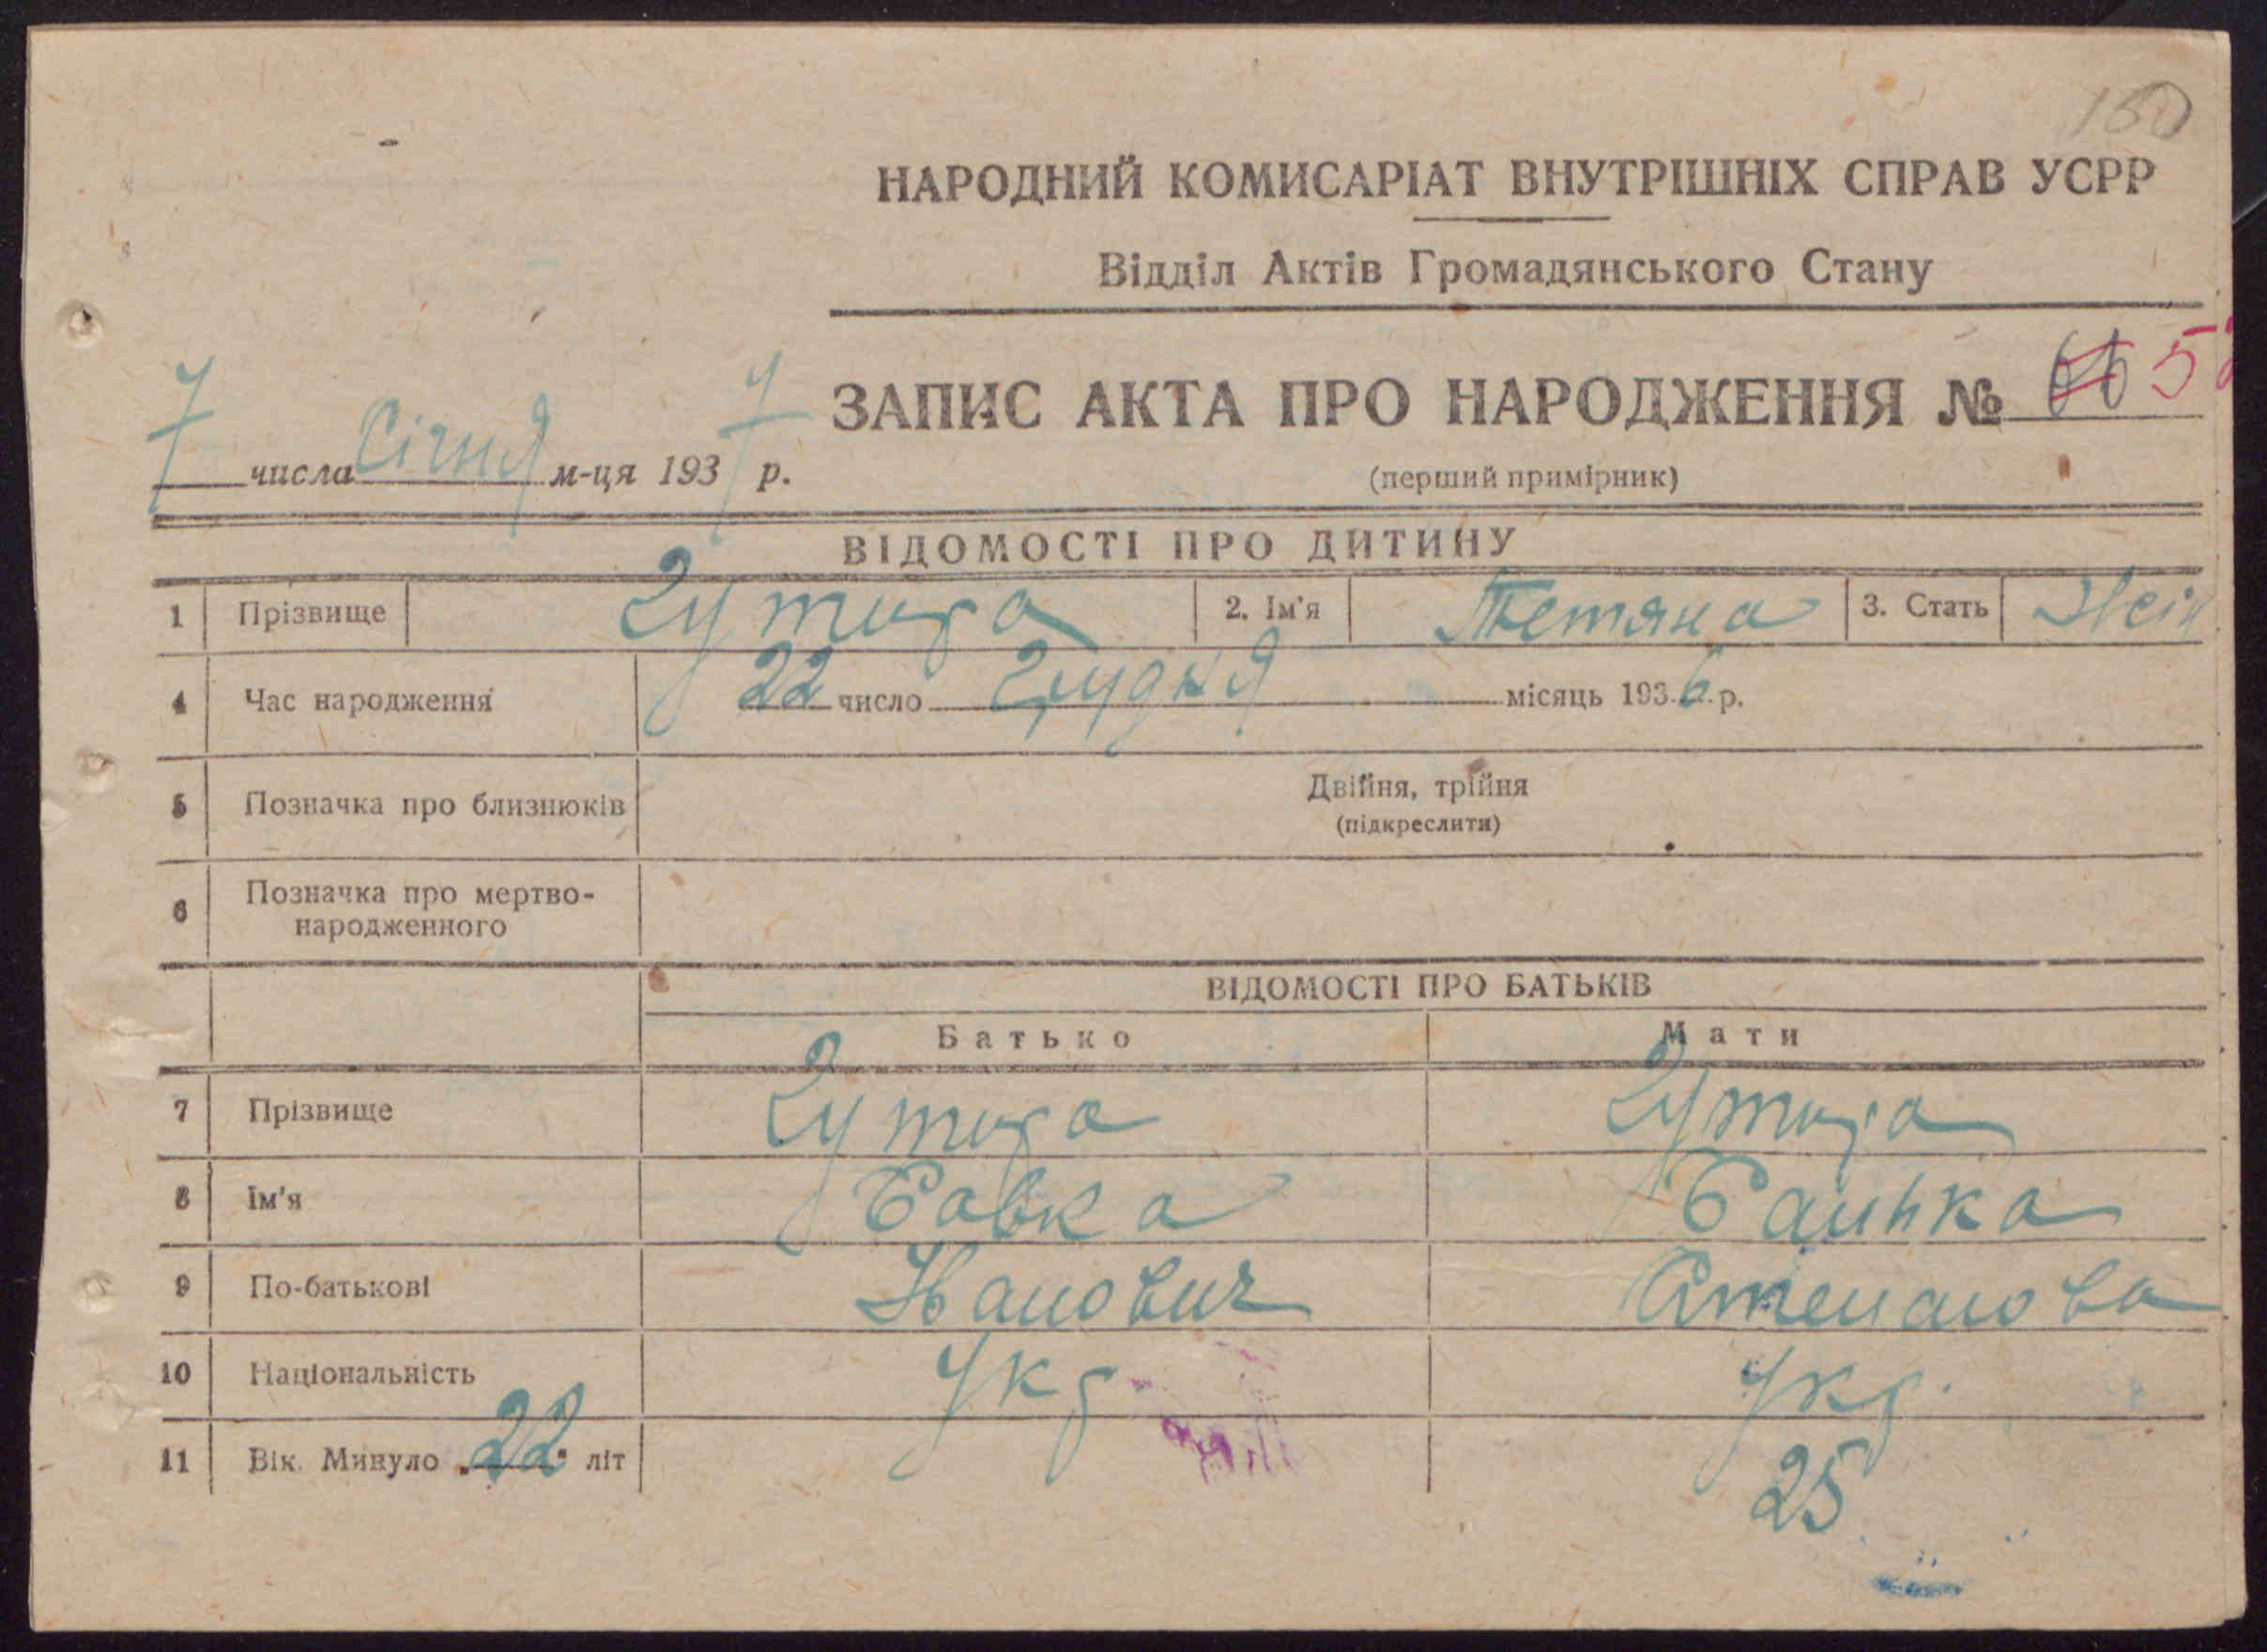 160
НАРОДНИЙ КОМИСАРІАТ ВНУТРІШНІХ СПРАВ УСРР
Відділ Актів Громадянського Стану
ЗАПИС АКТА ПРО НАРОДЖЕННЯ №
7 числа Січня м-ця 1937 р.
(перший примірник)
ВІДОМОСТІ ПРО ДИТИНУ
1 Прізвище Гутира 2. Ім'я Тетяна 3. Стать
4 Час народження 22 число Грудня місяць 1936 р.
5 Позначка про близнюків Двійня, трійня
(підкреслити)
6 Позначка про мертво-
народженного
ВІДОМОСТІ ПРО БАТЬКІВ
Батько Мати
7 Прізвище Гутира Гутира
8 Ім'я
9 По-батькові
10 Національність Укр Укр.
11 Вік. Минуло „22" літ 25